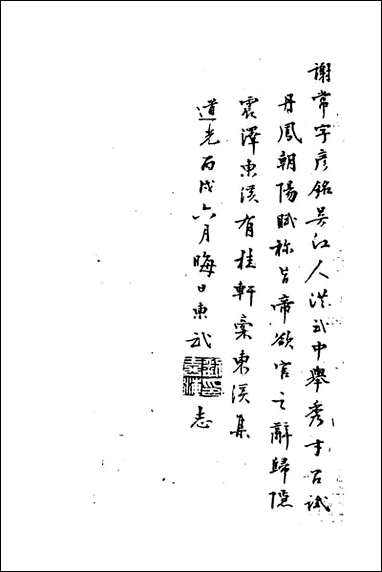 謝常字彥銘吳江人洪武中舉秀才召試
丹鳳朝陽賦称旨帝欲官之辭歸隱
震澤東溪有桂軒稾東溪集
道光丙戌六月晦日東武志